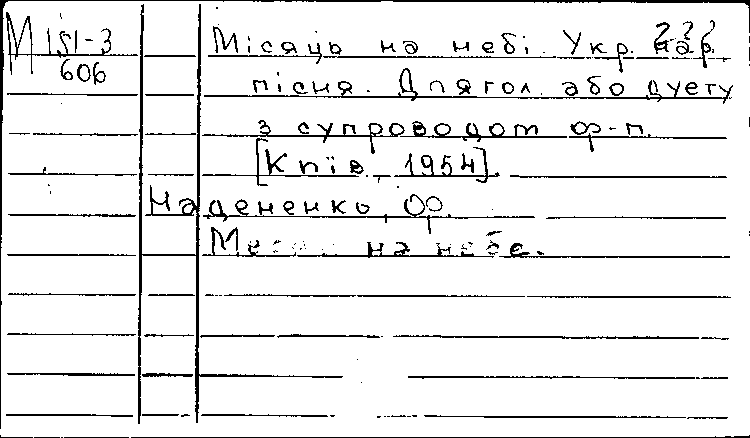 М 151-3
606
Місяць на небі. Укр. нар.
???
пісня. Для гол. або дуету
з супроводом ф-п.
[Київ, 1954].
Надененко, Ф.
Месяц на небе.